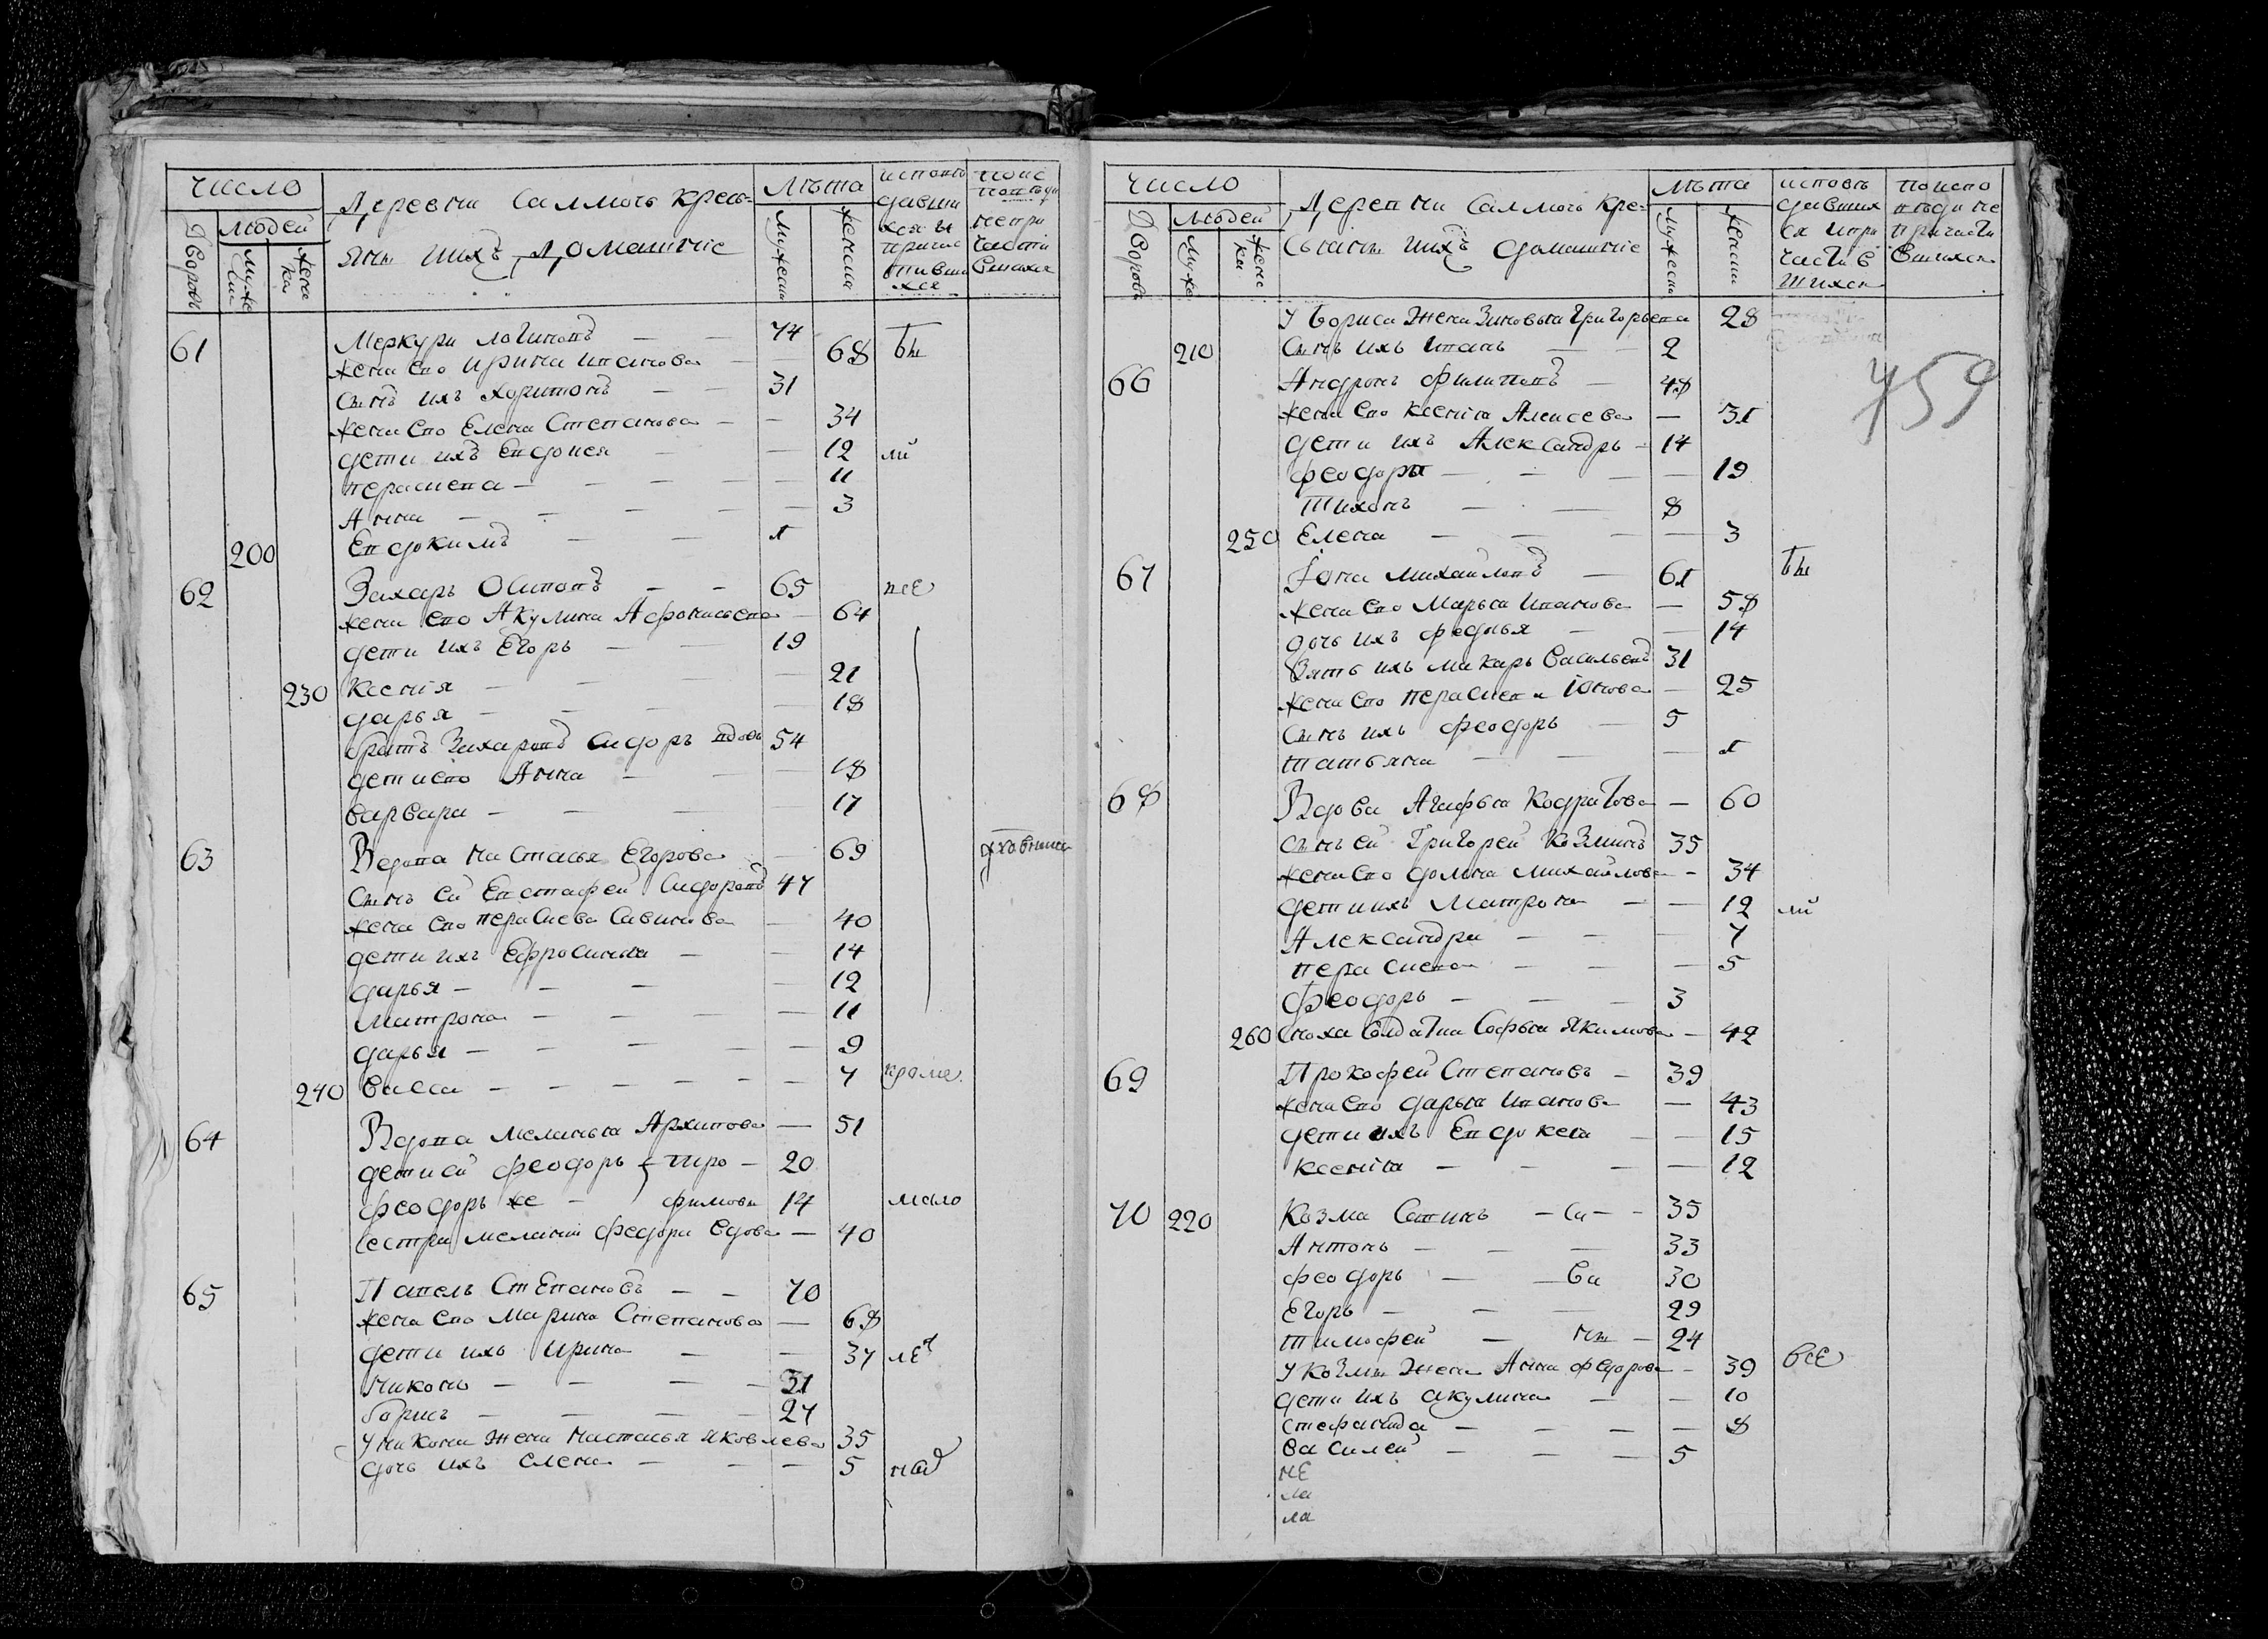 число
Деревни Саммочь кресь-
яни ихъ домашніе
Лѣта
Дворовъ
Людей
мужеска
женска
мужеска
женска
61 Меркури Логиновъ — 74
жена его Ирина Иванова — 68 бы
Сынъ ихъ Харитонъ — 31
жена его Елена Степанова — 34
дети ихъ Евдокея — 12 ли
Перасцева — 11
Анна — 3
200 Евдокимъ — 1
62 Захаръ Осиповъ — 65 все
жена его Акулина Афонасьева — 64
дети ихъ Егоръ — 19
230 Ксенія — 21
дарья — 18
братъ Захаровъ Сидоръ вдовъ 54
дети его Анна — 18
варвара — 17
63 Вдова Настасья Егорова — 69
Сынъ ей Евстафей Сидоровъ 47
жена его Перасцева Савинова — 40
дети ихъ Ефросинья — 14
дарья — 12
Матрона — 11
дарья — 9
240 Васса — 7 кроме
64 Вдова Меланья Архипова — 51
дети ей феодоръ — тро — 20
феодоръ же — фимовы 14 мало
Сестра мелании федора вдова — 40
65 Павелъ Степановъ — 70
жена его Марина Степанова — 68
дети ихъ Ирина — 37 лет
Никонъ — 31
борисъ — 27
У никона жена настасья яковлева 35
дочь ихъ елена — 5 нъ
число
Деревни Саммочь кре-
сьянъ ихъ домашніе
Лѣта
исповъ
давших
ся и при
части в
шихся
по испо
ведиме
причасти
вшихся
Дворовъ
Людей
муже
женска
мужеска
женска
У бориса жена Зиновья Григорьева 28
210 Сынъ ихъ Иванъ — 2
66 Андронъ филиповъ — 48
459
жена его Ксенія Алексева — 31
дети ихъ Александръ — 14
феодора — 19
Тихонъ — 8
250 Елена — 3
67 Іона михаиловъ — 61 бы
жена его Марья Иванова — 58
дочь ихъ федосья — 14
Зять ихъ макаръ Васильевъ 31
жена его Перасцева Іонова — 25
Сынъ ихъ феодоръ — 5
татьяна — 1
68 Вдова Агафья Кодратова — 60
Сынъ ей Григорей Козминъ 35
жена его домна михайлова — 34
дети ихъ Матрона — 12 ли
Александра — 7
Перасцева — 5
Феодоръ — 3
260 Сноха Солдатка Софья Якимова — 42
69 Прокофей Степановъ — 39
жена его дарья Иванова — 43
дети ихъ Евдокея — 15
Ксенія — 12
70 220 Козма Савинъ — Са — 35
Антонъ — 33
феодоръ — ви 30
Егоръ — 29
тимофей — ны — 24
У козмы жена Анна федорова — 39 все
дети ихъ акулина — 10
стефанида — 8
василей — 5
не
ли
ла